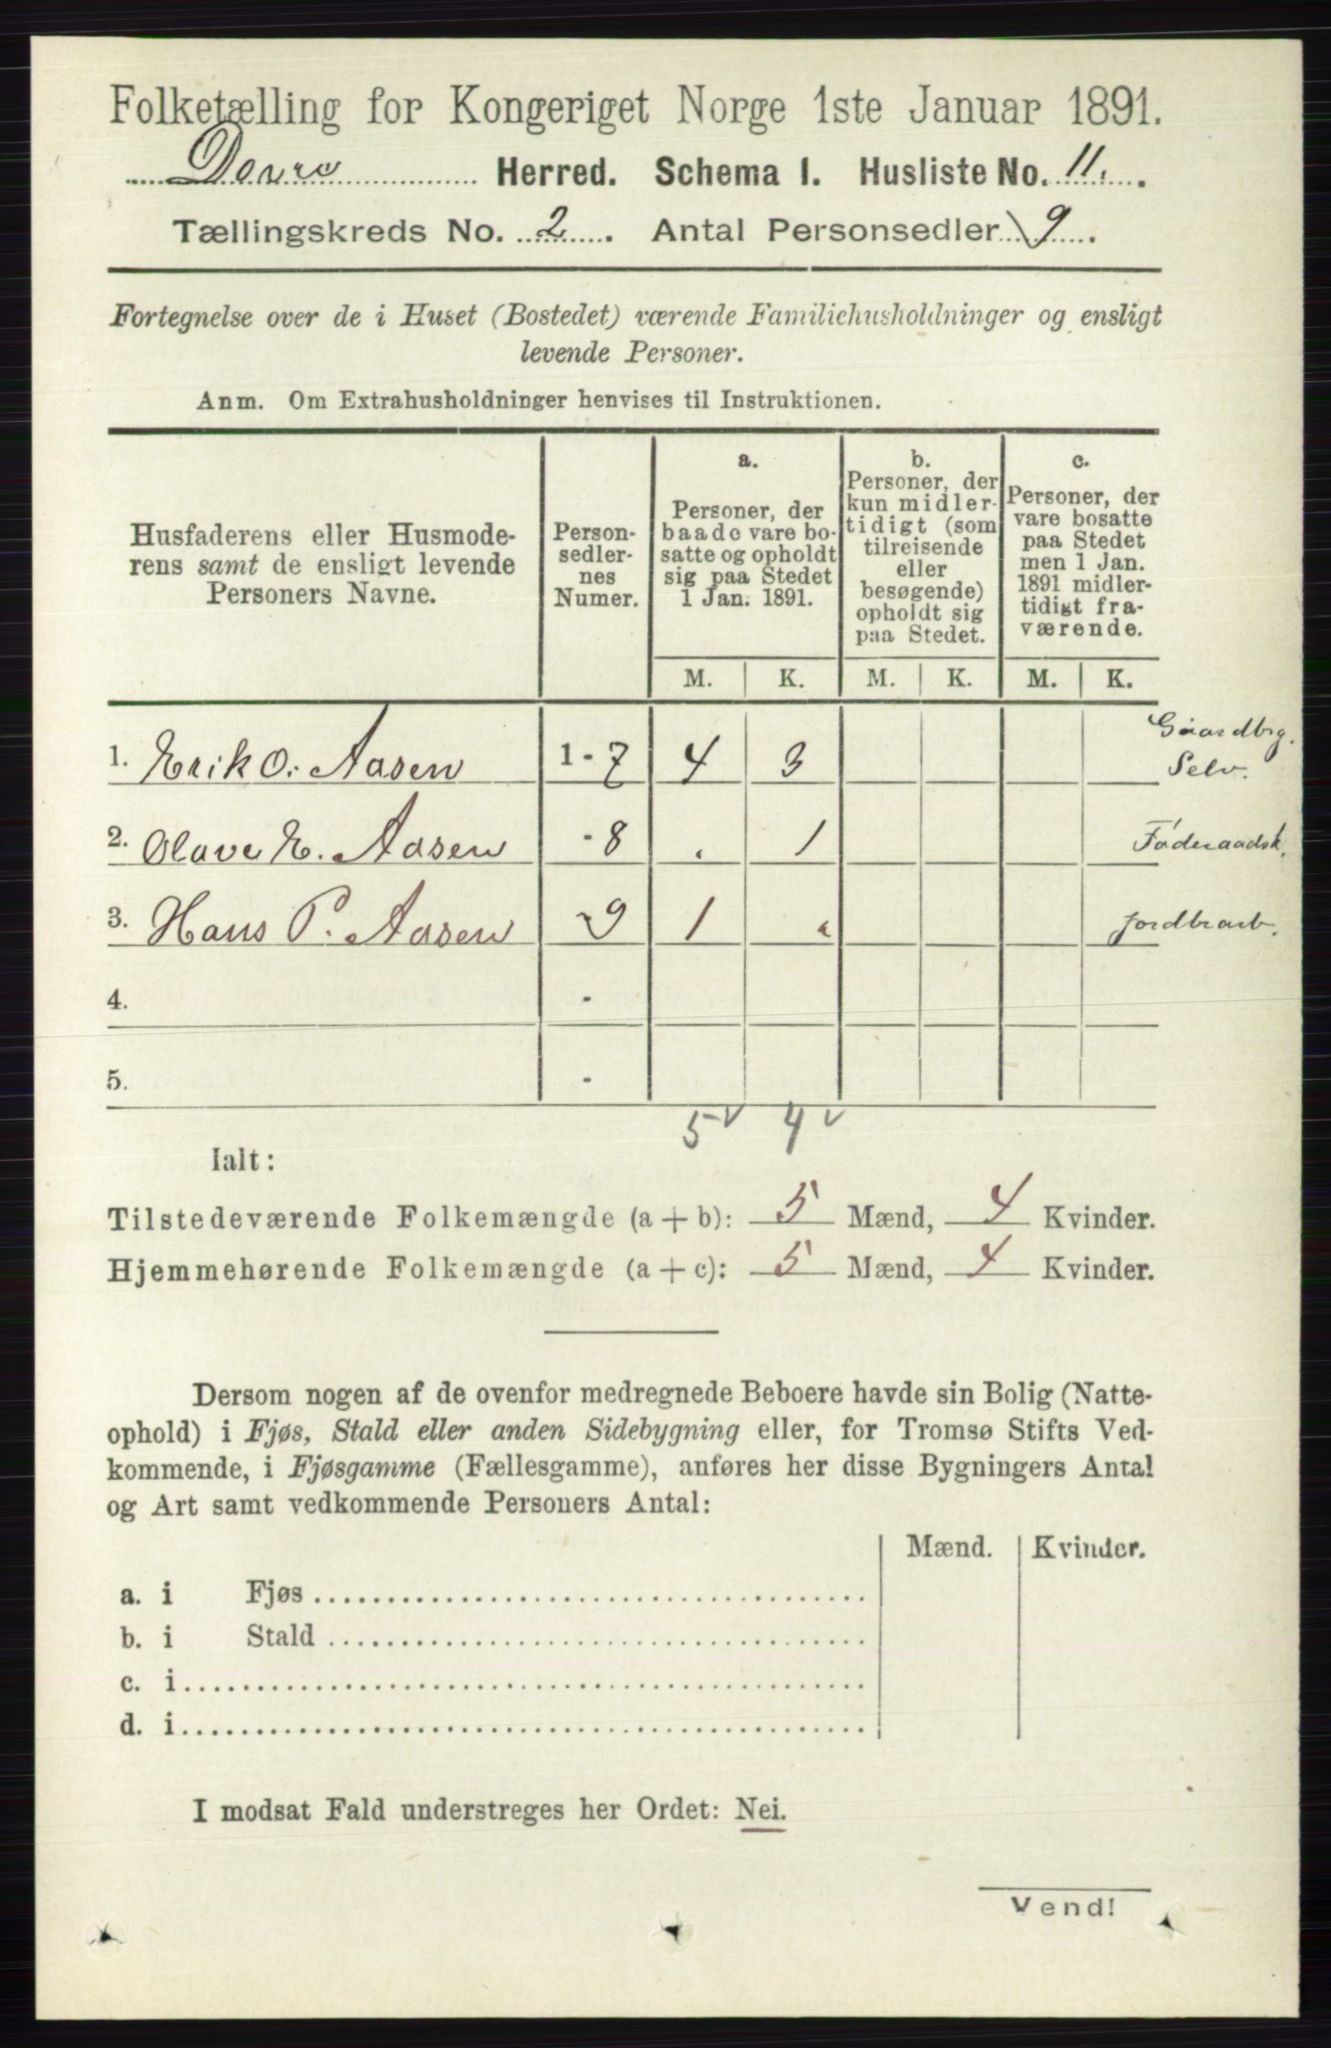 Folketælling for Kongeriget Norge 1ste Januar 1891.
Dovre Herred. Schema I. Husliste No. 11.
Tællingskreds No. 2. Antal Personsedler 9.
Fortegnelse over de i Huset (Bostedet) værende Familiehusholdninger og ensligt
levende Personer.
Anm. Om Extrahusholdninger henvises til Instruktionen.
Husfaderens eller Husmode-
rens samt de ensligt levende
Personers Navne.
Person-
sedler-
nes
Numer.
a.
Personer, der
baade vare bo-
satte og opholdt
sig paa Stedet
1 Jan. 1891.
b.
Personer, der
kun midler-
tidigt (som
tilreisende
eller
besøgende)
opholdt sig
paa Stedet.
c.
Personer, der
vare bosatte
paa Stedet
men 1 Jan.
1891 midler-
tidigt fra-
værende.
M. K. M. K. M. K.
1. Erik O. Aasen 1-7 4 3 Gaardbrg. Selv.
2. Olave E. Aasen -8 . 1 Føderaadsk.
3. Hans P. Aasen -9 1 . Jordbrarb.
4. -
5. -
5 v 4 v
Ialt:
Tilstedeværende Folkemængde (a + b): 5 Mænd, 4 Kvinder.
Hjemmehørende Folkemængde (a + c): 5 Mænd, 4 Kvinder.
Dersom nogen af de ovenfor medregnede Beboere havde sin Bolig (Natte-
ophold) i Fjøs, Stald eller anden Sidebygning eller, for Tromsø Stifts Ved-
kommende, i Fjøsgamme (Fællesgamme), anføres her disse Bygningers Antal
og Art samt vedkommende Personers Antal:
Mænd. Kvinder.
a. i Fjøs
b. i Stald
c. i
d. i
I modsat Fald understreges her Ordet: Nei.
Vend!